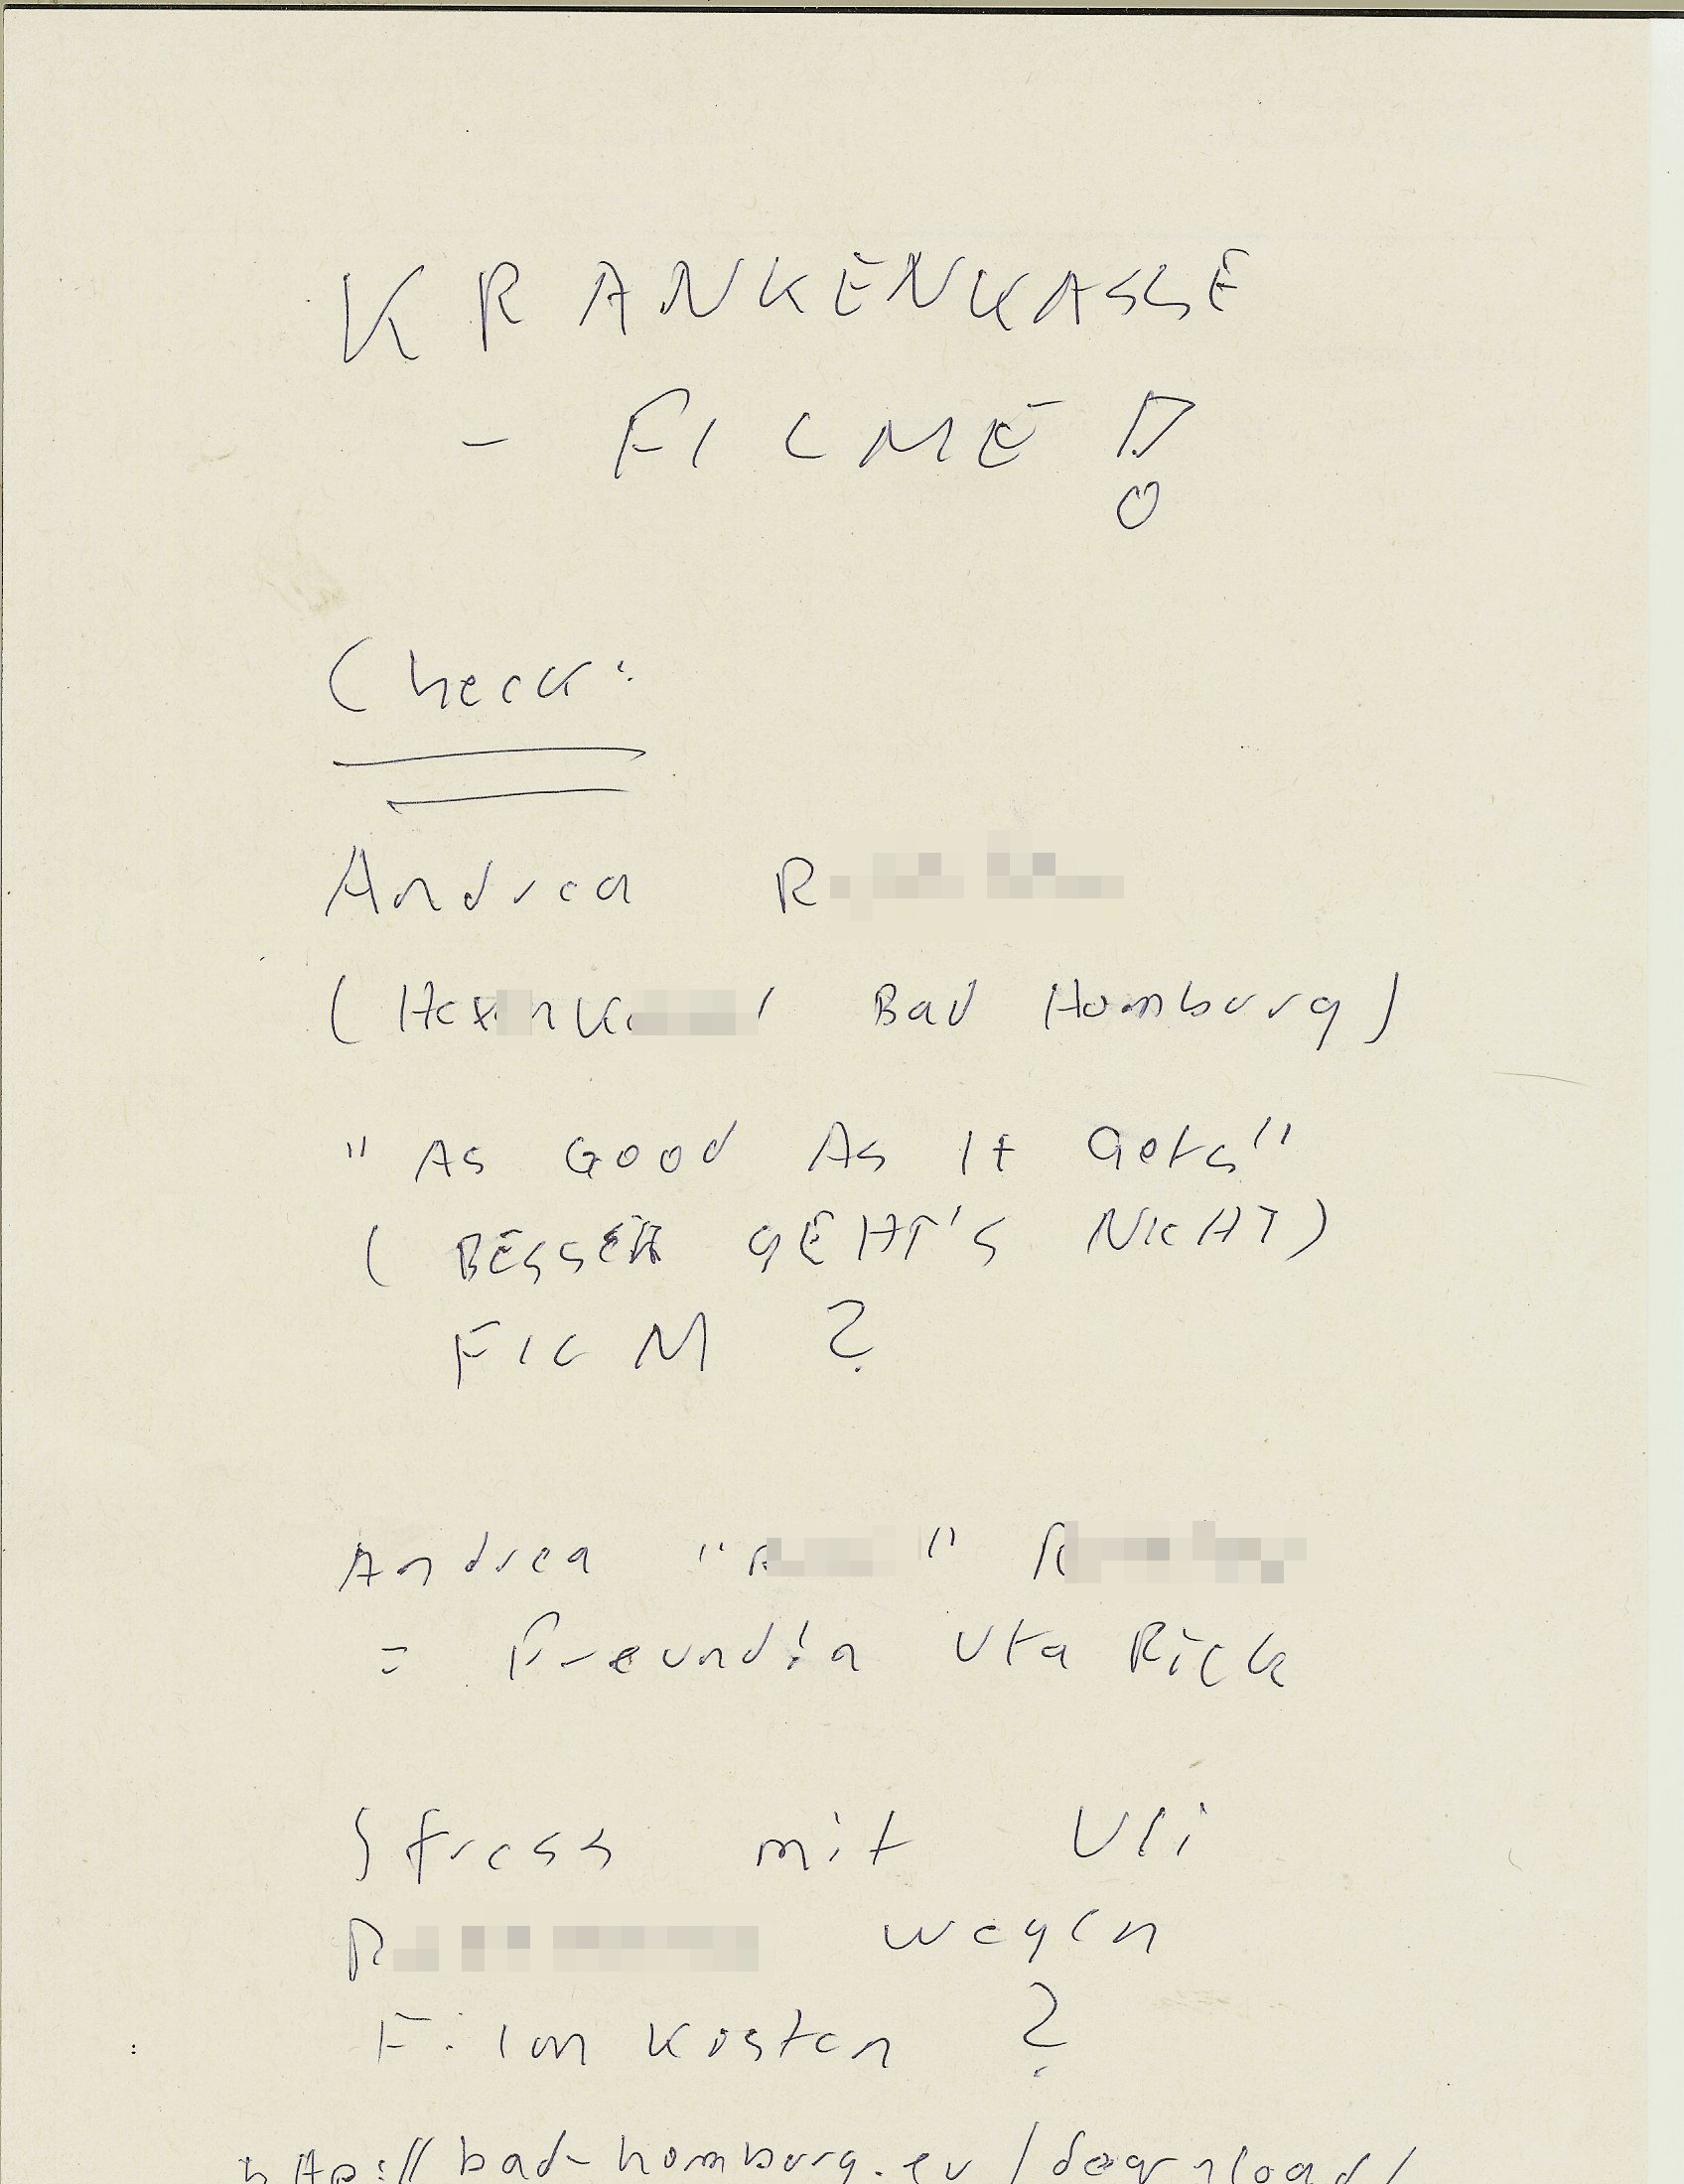 KRANKENKASSE
- FILME!
Check:
Andrea R
( Bad Homburg)
"As Good As It Gets"
(BESSER GEHT'S NICHT)
FILM ?
Andrea " " R
= Freundin Uta Rick
Stress mit Uli
R wegen
Filmkosten ?
http://bad-homburg.eu/download/